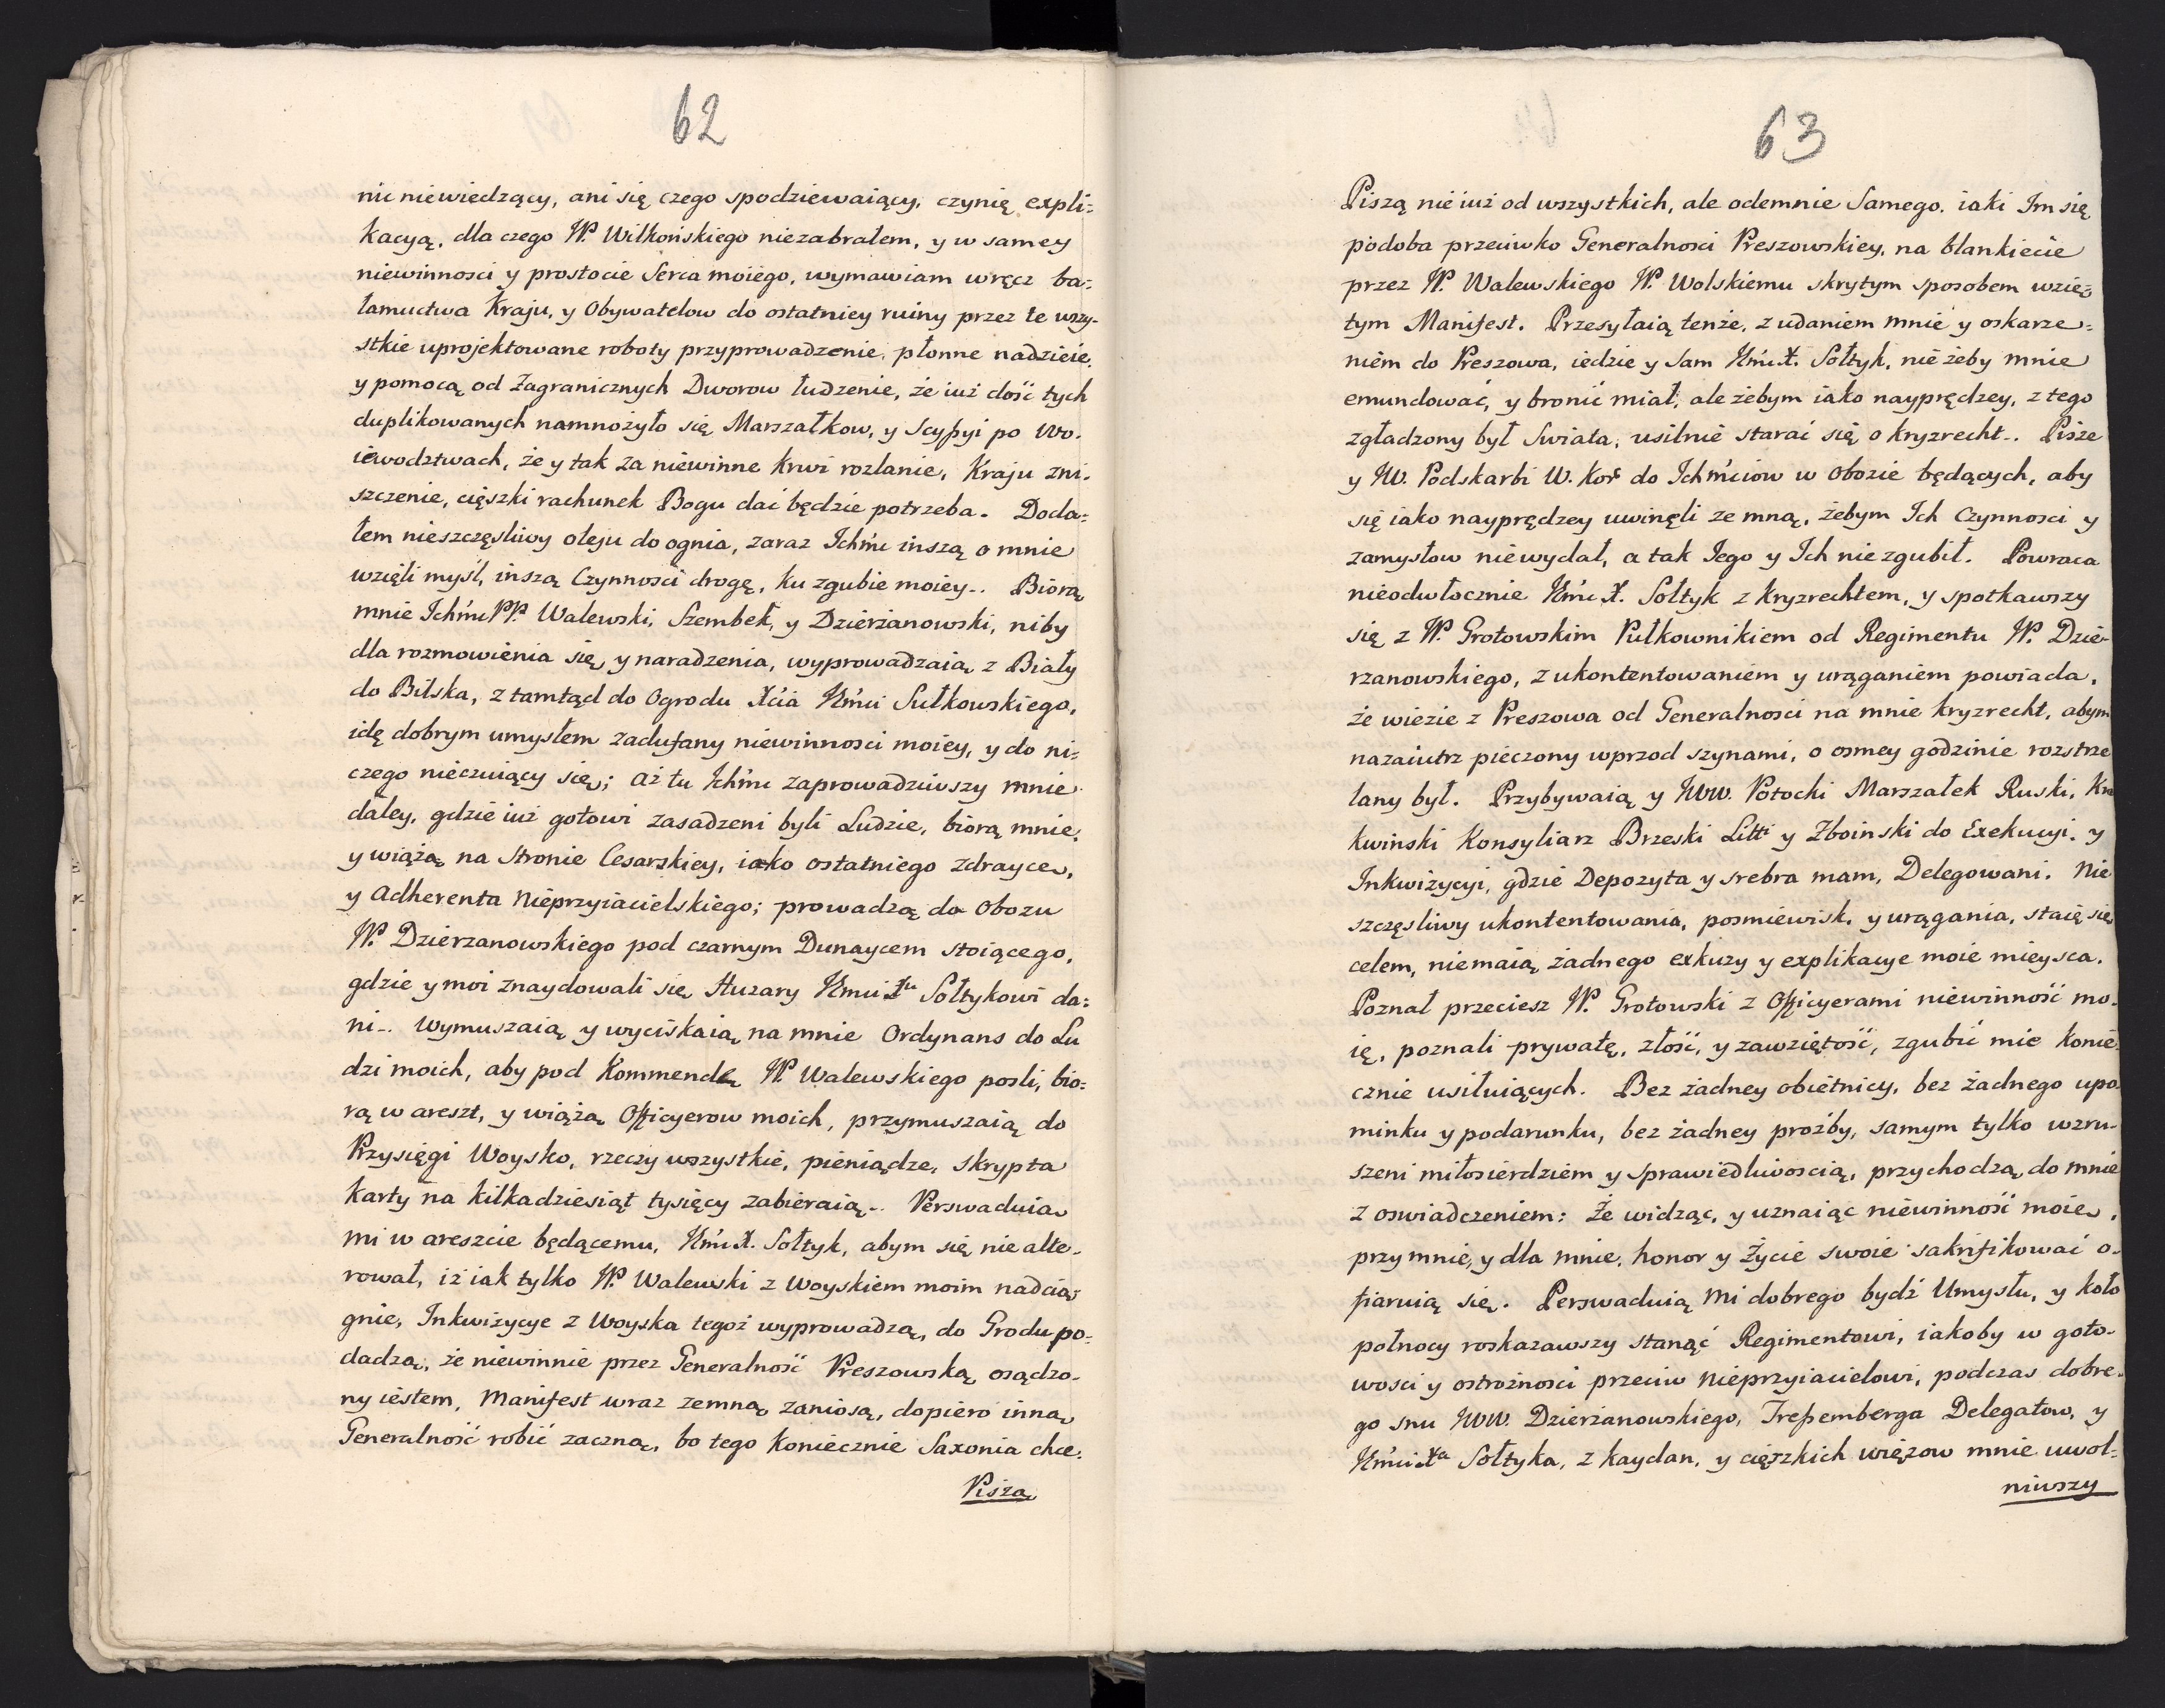 62
nic niewiedzący, ani się czego spodziewaiący, czynię expli-
kacyą, dla czego W. Wilkońskiego niezabrałem, y w samey
niewinnosci y prostocie Serca moiego, wymawiam wręcz ba-
łamuctwa Kraju, y Obywatelow do ostatniey ruiny przez te wszy-
stkie uprojektowane roboty przyprowadzenie, płonne nadzieie,
y pomocą od Zagranicznych Dworow łudzenie, że iuż dość tych
duplikowanych namnożyło się Marszałkow, y Scyssyi po Wo-
iewodztwach, że y tak za niewinne krwi rozlanie, Kraju zni-
szczenie, cięszki rachunek Bogu dać będzie potrzeba. Doda-
łem nieszczęsliwy oleju do ognia, zaraz Ichmć inszą o mnie
wzięli myśl, inszą Czynnosci drogę, ku zgubie moiey.. Biorą
mnie Ichmć PP. Walewski, Szembek, y Dzierżanowski, niby
dla rozmowienia się y naradzenia, wyprowadzaią z Biały
do Bilska, z tamtąd do Ogrodu Xcia Jmći Sułkowskiego,
idę dobrym umysłem zadufany niewinnosci moiey, y do ni-
czego nieczuiący się; aż tu Ichmć zaprowadziwszy mnie
daley, gdzie iuż gotowi zasadzeni byli Ludzie, biorą mnie,
y wiążą na Stronie Cesarskiey, iako ostatniego zdrayce,
y Adherenta Nieprzyiacielskiego; prowadzą do Obozu
W. Dzierzanowskiego pod czarnym Dunaycem stoiącego,
gdzie y moi znaydowali się Huzary Jmci Xu Sołtykowi da-
ni.. Wymuszaią y wyciskaią na mnie Ordynans do Lu
dzi moich, aby pod Kommendę W. Walewskiego poszli, bio-
rą w areszt, y wiążą Officyerow moich, przymuszaią do
Przysięgi Woysko, rzeczy wszystkie, pieniądze, skrypta
karty na kilkadziesiąt tysięcy zabieraią.. Perswaduia
mi w areszcie będącemu, Jmć X. Sołtyk, abym się nie alte-
rował, iż iak tylko W. Walewski z Woyskiem moim nadcią-
gnie, Inkwizycye z Woyska tegoż wyprowadzą, do Grodu po-
dadzą, że niewinnie przez Generalność Preszowską osądzo-
ny iestem, Manifest wraz zemną zaniosą, dopiero inną
Generalność robić zaczną, bo tego koniecznie Saxonia chce.
Piszą
63
Piszą nie iuż od wszystkich, ale odemnie Samego, iaki Im się
podoba przeciwko Generalnosci Preszowskiey, na blankiecie
przez W. Walewskiego W. Wolskiemu skrytym sposobem wzię-
tym Manifest. Przesyłaią tenże, z udaniem mnie y oskarze-
niem do Preszowa, iedzie y Sam Jmć X. Sołtyk, nie żeby mnie
emundować, y bronić miał, ale żebym iako nayprędzey, z tego
zgładzony był Swiata, usilnie starać się o kryzrecht.. Pisze
y JW. Podskarbi W. Kor do Ichmciow w Obozie będących, aby
się iako nayprędzey uwinęli ze mną, żebym Ich Czynnosci y
zamysłow niewydał, a tak Iego y Ich niezgubił. Powraca
nieodwłocznie Jmć X. Sołtyk z kryzrechtem, y spotkawszy
się z W. Grotowskim Pułkownikiem od Regimentu W. Dzie-
rzanowskiego, z ukontentowaniem y urąganiem powiada,
że wiezie z Preszowa od Generalnosci na mnie kryzrecht, abym
nazaiutrz pieczony wprzod szynami, o osmey godzinie rozstrze
lany był. Przybywaią y JWW. Potocki Marszałek Ruski, Kra
kwinski Konsyliarz Brzeski Litti y Zboinski do Exekucyi, y
Inkwizycyi, gdzie Depozyta y srebra mam, Delegowani. Nie
szczęsliwy ukontentowania, posmiewisk, y urągania, staię się
celem, niemaią żadnego exkuzy y explikacye moie mieysca.
Poznał przeciesz W. Grotowski z Officyerami niewinność mo-
ię, poznali prywatę, złość, y zawziętość, zgubić mie konie-
cznie usiłuiących. Bez żadney obietnicy, bez żadnego upo-
minku y podarunku, bez żadney prożby, samym tylko wzru-
szeni miłosierdziem y sprawiedliwoscią, przychodzą do mnie
z oswiadczeniem: Że widząc, y uznaiąc niewinność moię,
przy mnie, y dla mnie, honor y życie swoie sakryfikować o-
fiaruią się. Perswaduią mi dobrego bydź Umysłu, y koło
połnocy roskazawszy stanąć Regimentowi, iakoby w goto-
wosci y ostrożnosci przeciw Nieprzyiacielowi, podczas dobre-
go snu JWW. Dzierżanowskiego, Tressemberga Delegatow, y
Jmci Xa Sołtyka, z kaydan, y cięszkich więzow mnie uwol-
niwszy